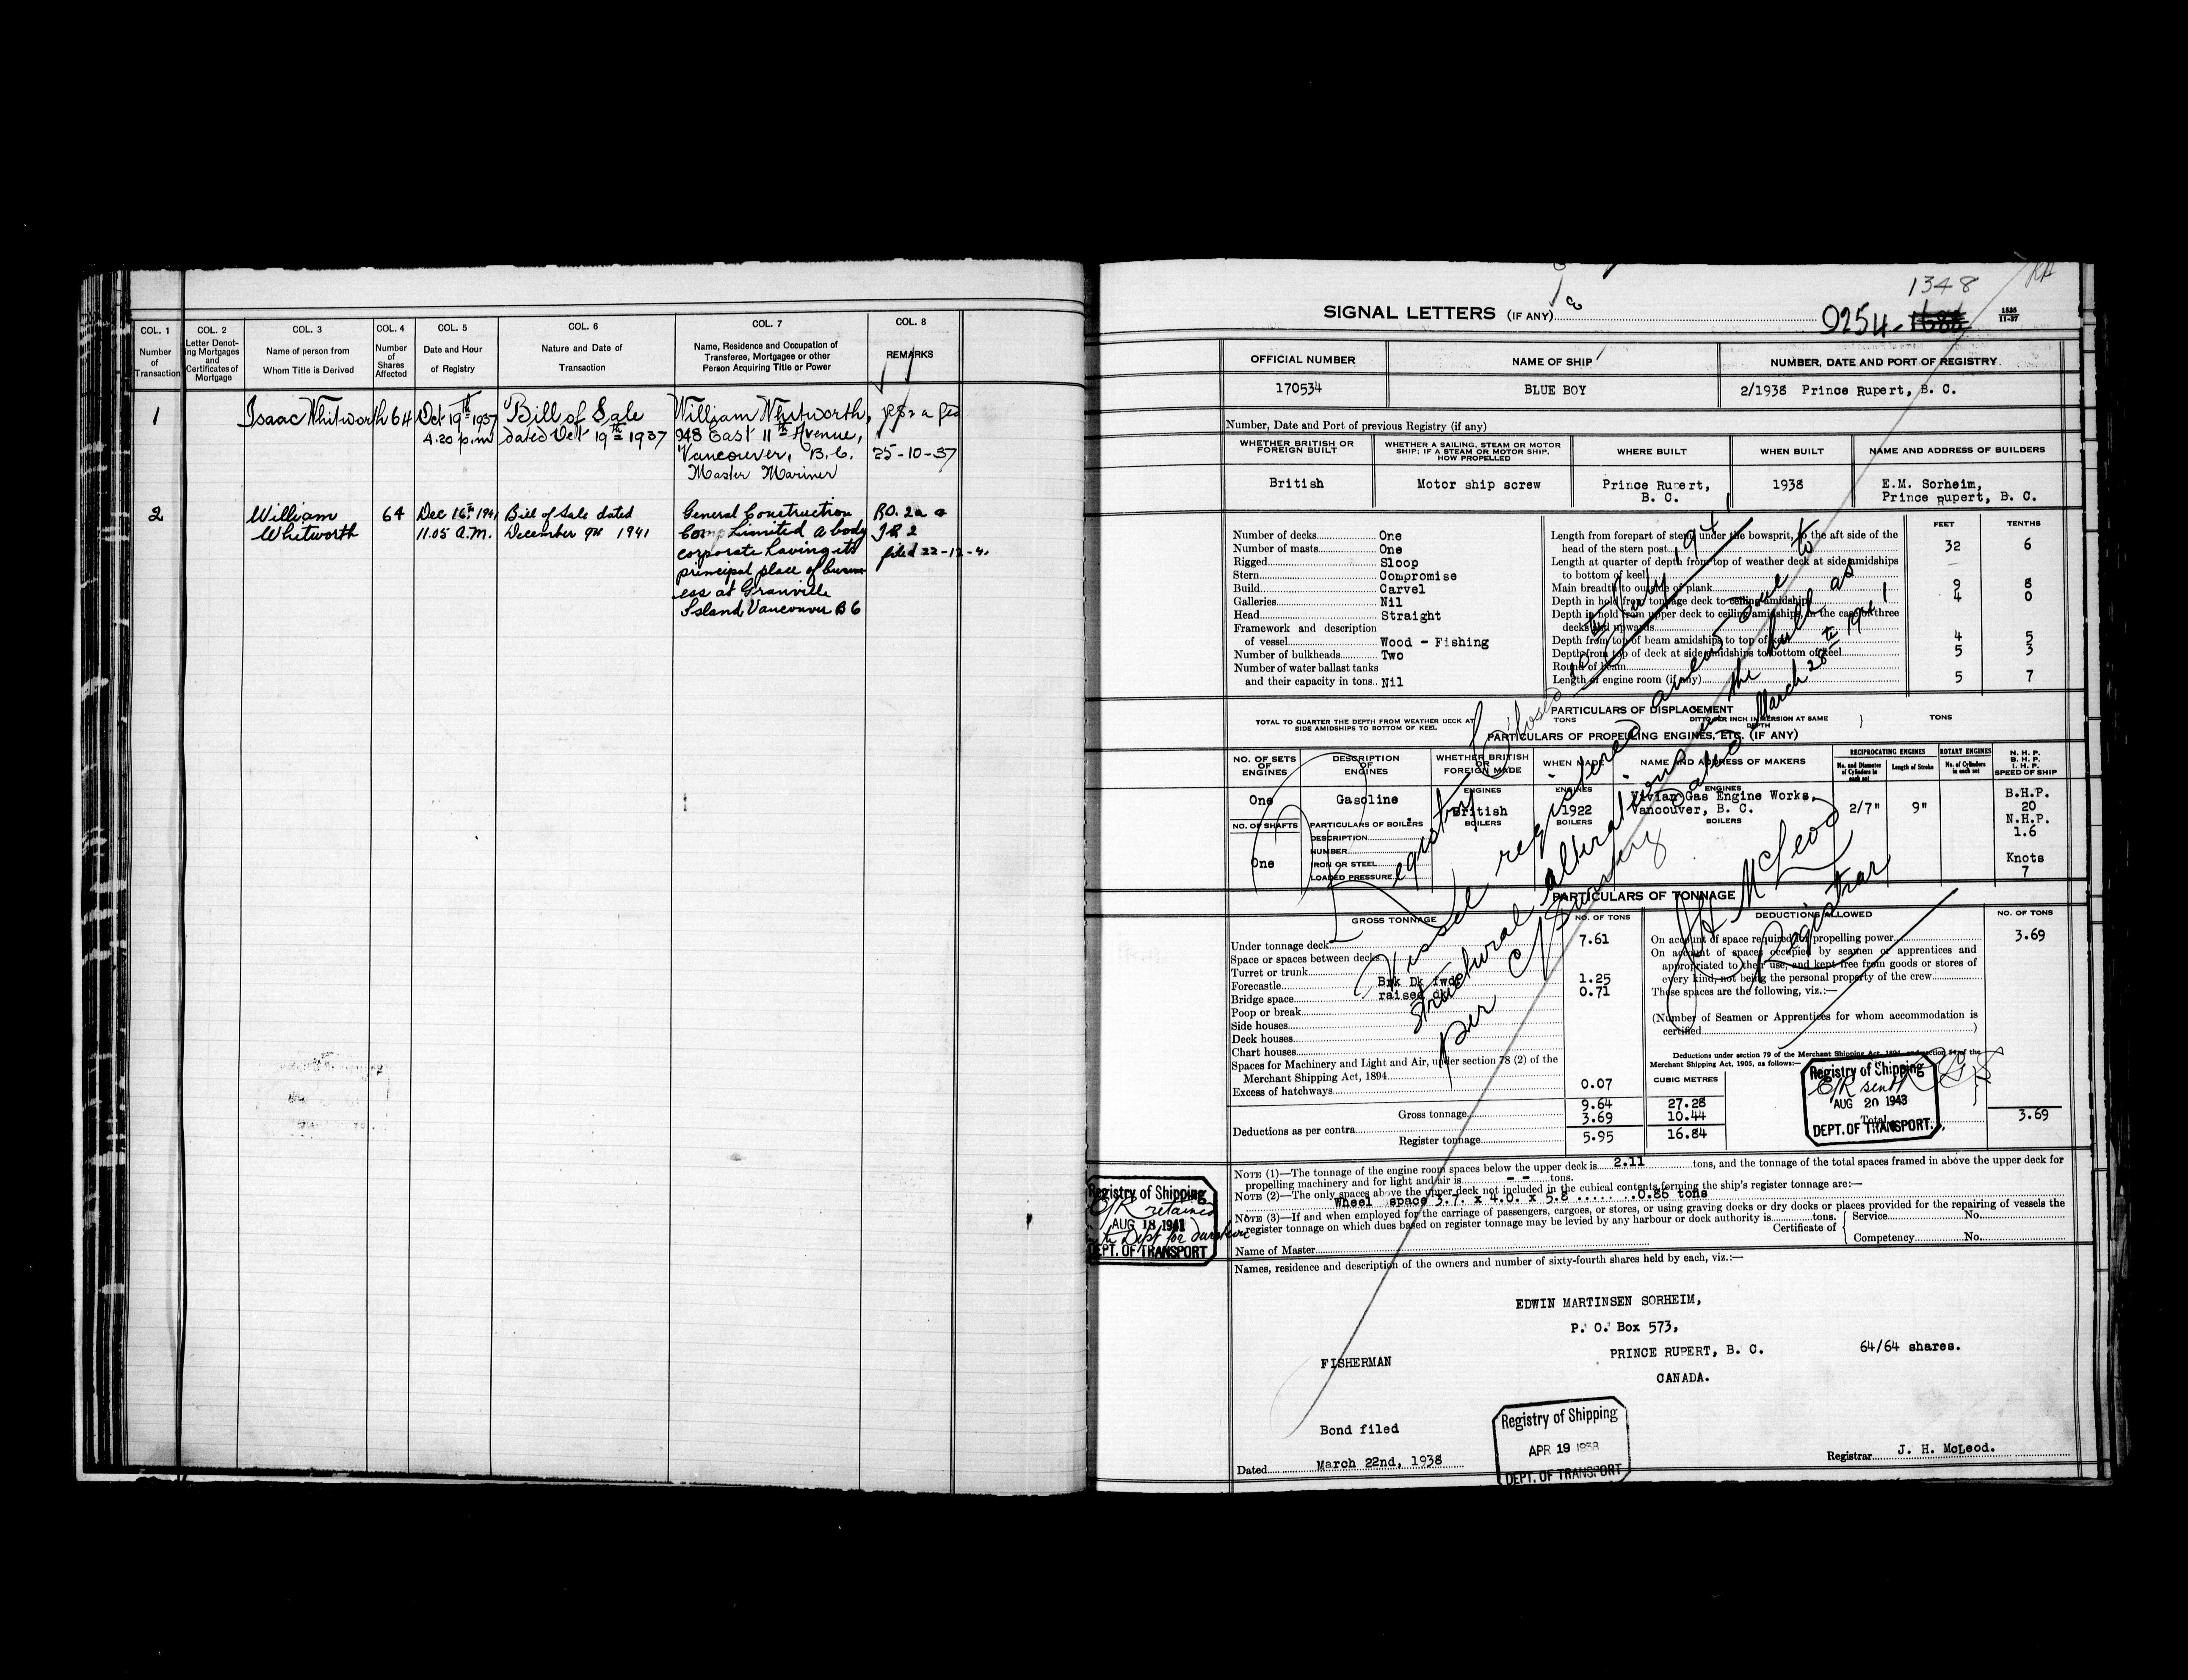 COL. 1
Number
of
Transaction
COL. 2
Letter Denot-
ing Mortgages
and
Certificates of
Mortgage
COL. 3
Name of person from
Whom Title is Derived
COL. 4
Number
of
Shares
Affected
COL. 5
Date and Hour
of Registry
COL. 6
Nature and Date of
Transaction
COL. 7
Name, Residence and Occupation of
Transferee, Mortgagee or other
Person Acquiring Title or Power
COL. 8
REMARKS
1
Isaac Whitworth
64
Oct 19th 1937
4.20 p.m
Bill of Sale
dated Oct 19th 1937
William Whitworth,
948 East 11th Avenue,
Vancouver, B.C.
Master Mariner
25-10-37
2
William
Whitworth
64
Dec 16th 1941
11.05 A.M.
Bill of Sale dated
December 9th 1941
General Construction
Comp Limited a body
corporate having its
principal place of busin
ess at Granville
Island, Vancouver B C
R.O. 2a
filed 22-12-4
1348
SIGNAL LETTERS (IF ANY)
0254-
1535
11-37
OFFICIAL NUMBER
NAME OF SHIP
NUMBER, DATE AND PORT OF REGISTRY
170534
BLUE BOY
2/1938 Prince Rupert, B. C.
Number, Date and Port of previous Registry (if any)
WHETHER BRITISH OR
FOREIGN BUILT
WHETHER A SAILING, STEAM OR MOTOR
SHIP; IF A STEAM OR MOTOR SHIP,
HOW PROPELLED
WHERE BUILT
WHEN BUILT
NAME AND ADDRESS OF BUILDERS
British
Motor ship screw
Prince Rupert,
B. C.
1938
E.M. Sorheim,
Prince Rupert, B. C.
FEET
TENTHS
Number of decks One
Number of masts One
Rigged Sloop
Stern Compromise
Build Carvel
Galleries Nil
Head Straight
Framework and description
of vessel Wood - Fishing
Number of bulkheads Two
Number of water ballast tanks
and their capacity in tons Nil
Length from forepart of stem, under the bowsprit, to the aft side of the
head of the stern post 32 6
Length at quarter of depth from top of weather deck at side amidships
to bottom of keel
Main breadth to outside of plank 9 8
Depth in hold from tonnage deck to ceiling amidships 4 0
Depth in hold from upper deck to ceiling amidships, in the case of three
decks and upwards
Depth from top of beam amidships to top of keel 4 5
Depth from top of deck at side amidships to bottom of keel 5 3
Round of beam
Length of engine room (if any) 5 7
PARTICULARS OF DISPLACEMENT
TOTAL TO QUARTER THE DEPTH FROM WEATHER DECK AT
SIDE AMIDSHIPS TO BOTTOM OF KEEL
TONS
DITTO PER INCH IMMERSION AT SAME
DEPTH
TONS
PARTICULARS OF PROPELLING ENGINES, ETC. (IF ANY)
NO. OF SETS
OF
ENGINES
DESCRIPTION
OF
ENGINES
WHETHER BRITISH
OR
FOREIGN MADE
WHEN MADE
NAME AND ADDRESS OF MAKERS
RECIPROCATING ENGINES
No. and Diameter
of Cylinders in
each set
Length of Stroke
ROTARY ENGINES
No. of Cylinders
in each set
N. H. P.
B. H. P.
I. H. P.
SPEED OF SHIP
One
Gasoline
ENGINES
British
ENGINES
1922
ENGINES
Vivian Gas Engine Works,
Vancouver, B. C.
2/7"
9"
B.H.P.
20
N.H.P.
1.6
Knots
7
NO. OF SHAFTS
One
PARTICULARS OF BOILERS
DESCRIPTION
NUMBER
IRON OR STEEL
LOADED PRESSURE
BOILERS
BOILERS
BOILERS
PARTICULARS OF TONNAGE
GROSS TONNAGE
NO. OF TONS
DEDUCTIONS ALLOWED
NO. OF TONS
Under tonnage deck 7.61
Space or spaces between decks
Turret or trunk
Forecastle Brk Dk fwd 1.25
Bridge space raised dk 0.71
Poop or break
Side houses
Deck houses
Chart houses
Spaces for Machinery and Light and Air, under section 78 (2) of the
Merchant Shipping Act, 1894
Excess of hatchways 0.07
CUBIC METRES
Gross tonnage 9.64 27.28
Deductions as per contra 3.69 10.44
Register tonnage 5.95 16.84
On account of space required for propelling power 3.69
On account of spaces occupied by seamen or apprentices and
appropriated to their use, and kept free from goods or stores of
every kind, not being the personal property of the crew
These spaces are the following, viz.:—
(Number of Seamen or Apprentices for whom accommodation is
certified )
Deductions under section 79 of the Merchant Shipping Act, 1894, and section 54 of the
Merchant Shipping Act, 1906, as follows:—
Registry of Shipping
C/R sent
AUG 20 1943
DEPT. OF TRANSPORT.
Total 3.69
Registry Closed
Vessel registered anew due to
structural alterations in the hull as
per Surveyor's dated March 28th 1941
J H McLeod
Registrar
NOTE (1)—The tonnage of the engine room spaces below the upper deck is 2.11 tons, and the tonnage of the total spaces framed in above the upper deck for
propelling machinery and for light and air is - - tons.
NOTE (2)—The only spaces above the upper deck not included in the cubical contents forming the ship's register tonnage are:—
Wheel space 3.7. x 4.0. x 5.8 ..... ..0.86 tons
NOTE (3)—If and when employed for the carriage of passengers, cargoes, or stores, or using graving docks or dry docks or places provided for the repairing of vessels the
register tonnage on which dues based on register tonnage may be levied by any harbour or dock authority is tons.
Certificate of
Service No.
Competency No.
Registry of Shipping
C/R retained
AUG 18 1941
in Dept for duration
DEPT. OF TRANSPORT
Name of Master
Names, residence and description of the owners and number of sixty-fourth shares held by each, viz.:—
EDWIN MARTINSEN SORHEIM,
P. O. Box 573,
PRINCE RUPERT, B. C.
64/64 shares.
FISHERMAN
CANADA.
Bond filed
Registry of Shipping
APR 19 1938
DEPT. OF TRANSPORT
Dated March 22nd, 1938
Registrar J. H. McLeod.